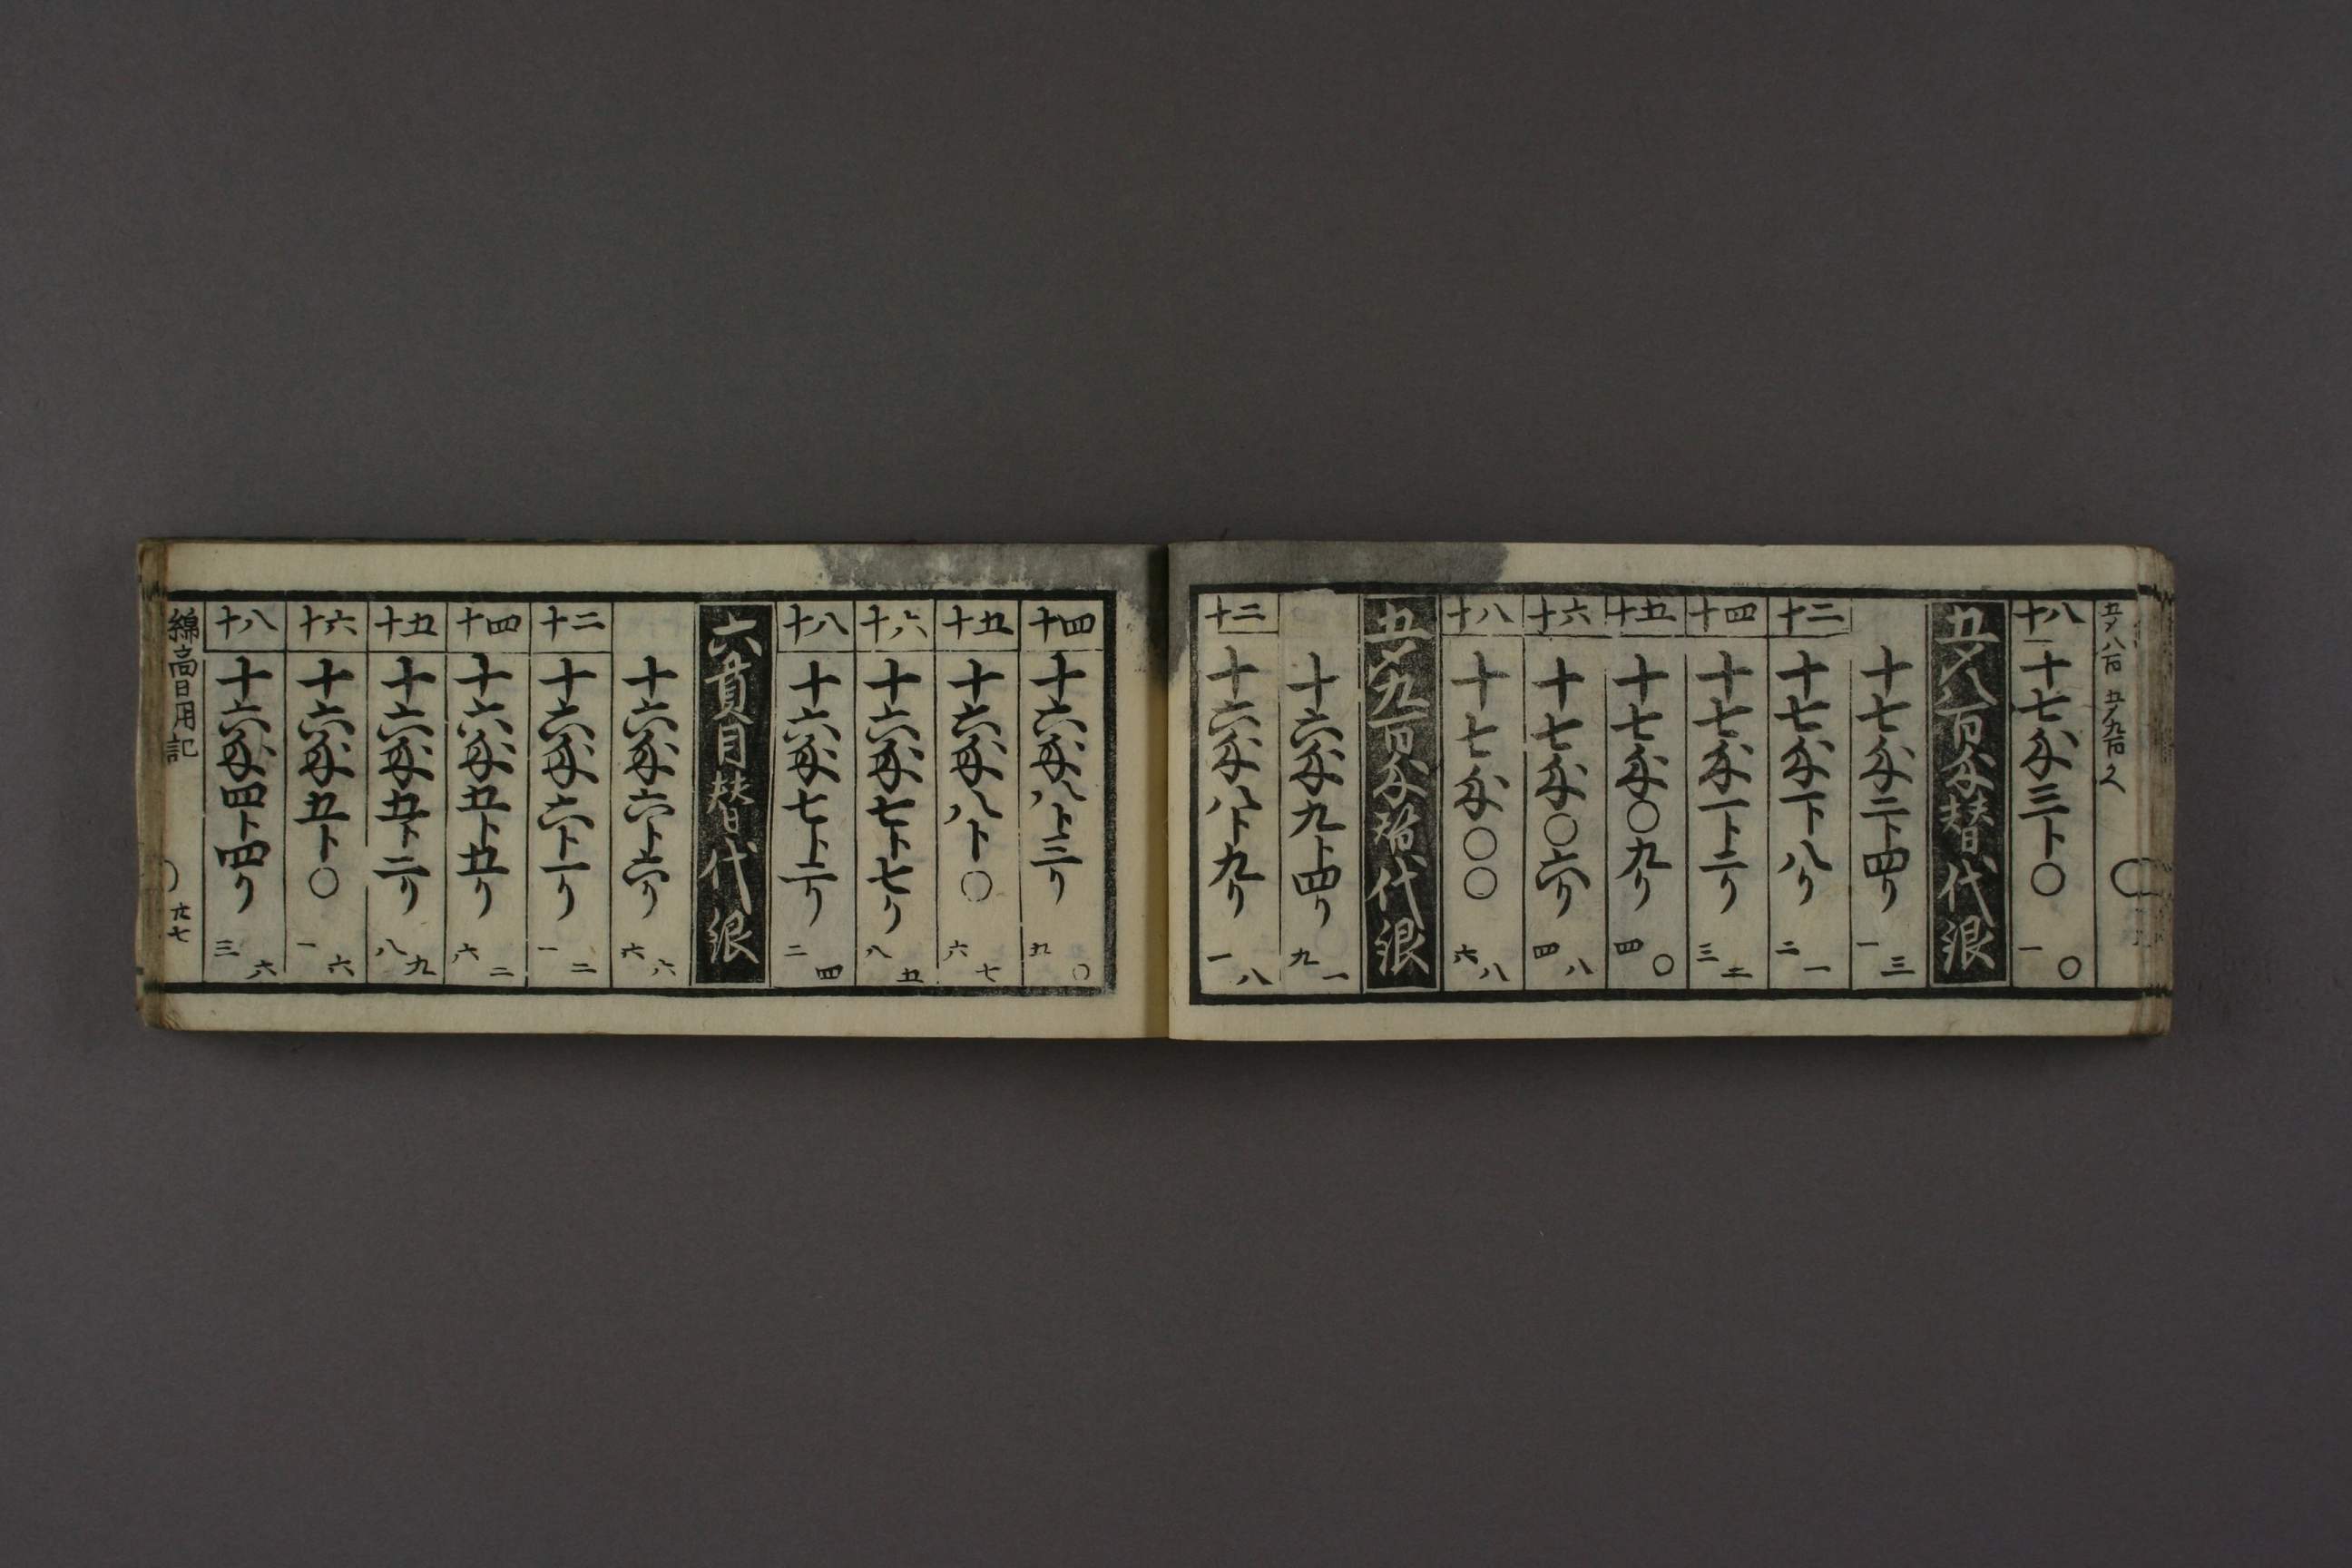 五〆八百 五〆九百
十八 十七匁三ト〇 一〇
五〆八百匁替代銀
十七匁二ト四リ 一三
十二 十七匁一ト八リ 二一
十四 十七匁一ト二リ 三二
十五 十七匁〇九リ 四〇
十六 十七匁〇六リ 四八
十八 十七匁〇〇 六八
五〆九百匁替代銀
十六匁九ト四リ 九一
十二 十六匁八ト九リ 一八
十四 十六匁八ト三リ 五〇
十五 十六匁八ト〇 六七
十六 十六匁七ト七リ 八五
十八 十六匁七ト二リ 二四
六貫目替代銀
十六匁六ト六リ 六六
十二 十六匁六ト一リ 一二
十四 十六匁五ト五リ 六二
十五 十六匁五ト二リ 八九
十六 十六匁五ト〇 一六
十八 十六匁四ト四リ 三六
綿高日用記 六七